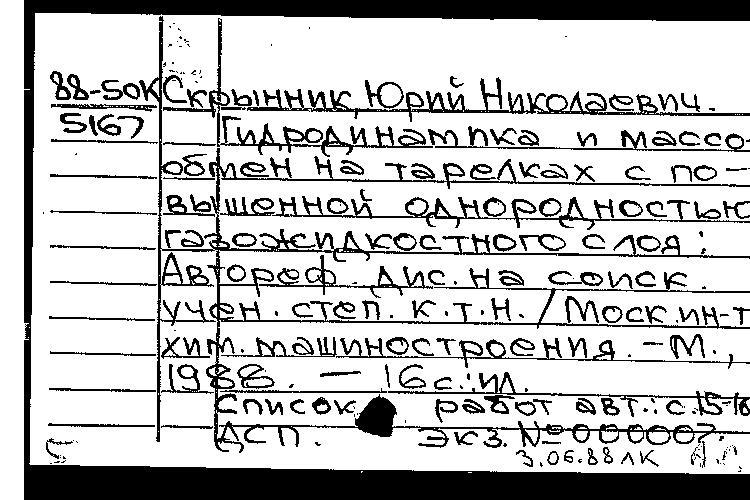 88-50К Скрынник, Юрий Николаевич.
5167 Гидродинамика и массо-
обмен на тарелках с по-
вышенной однородностью
газожидкостного слоя :
Автореф. дис. на соиск.
учен. степ. к.т.н. / Моск. ин-т
хим. машиностроения. - М.,
1988. - 16 с. : ил.
Список работ авт.: с. 15-16
ДСП. Экз. № 000007.
3.06.88 ЛК